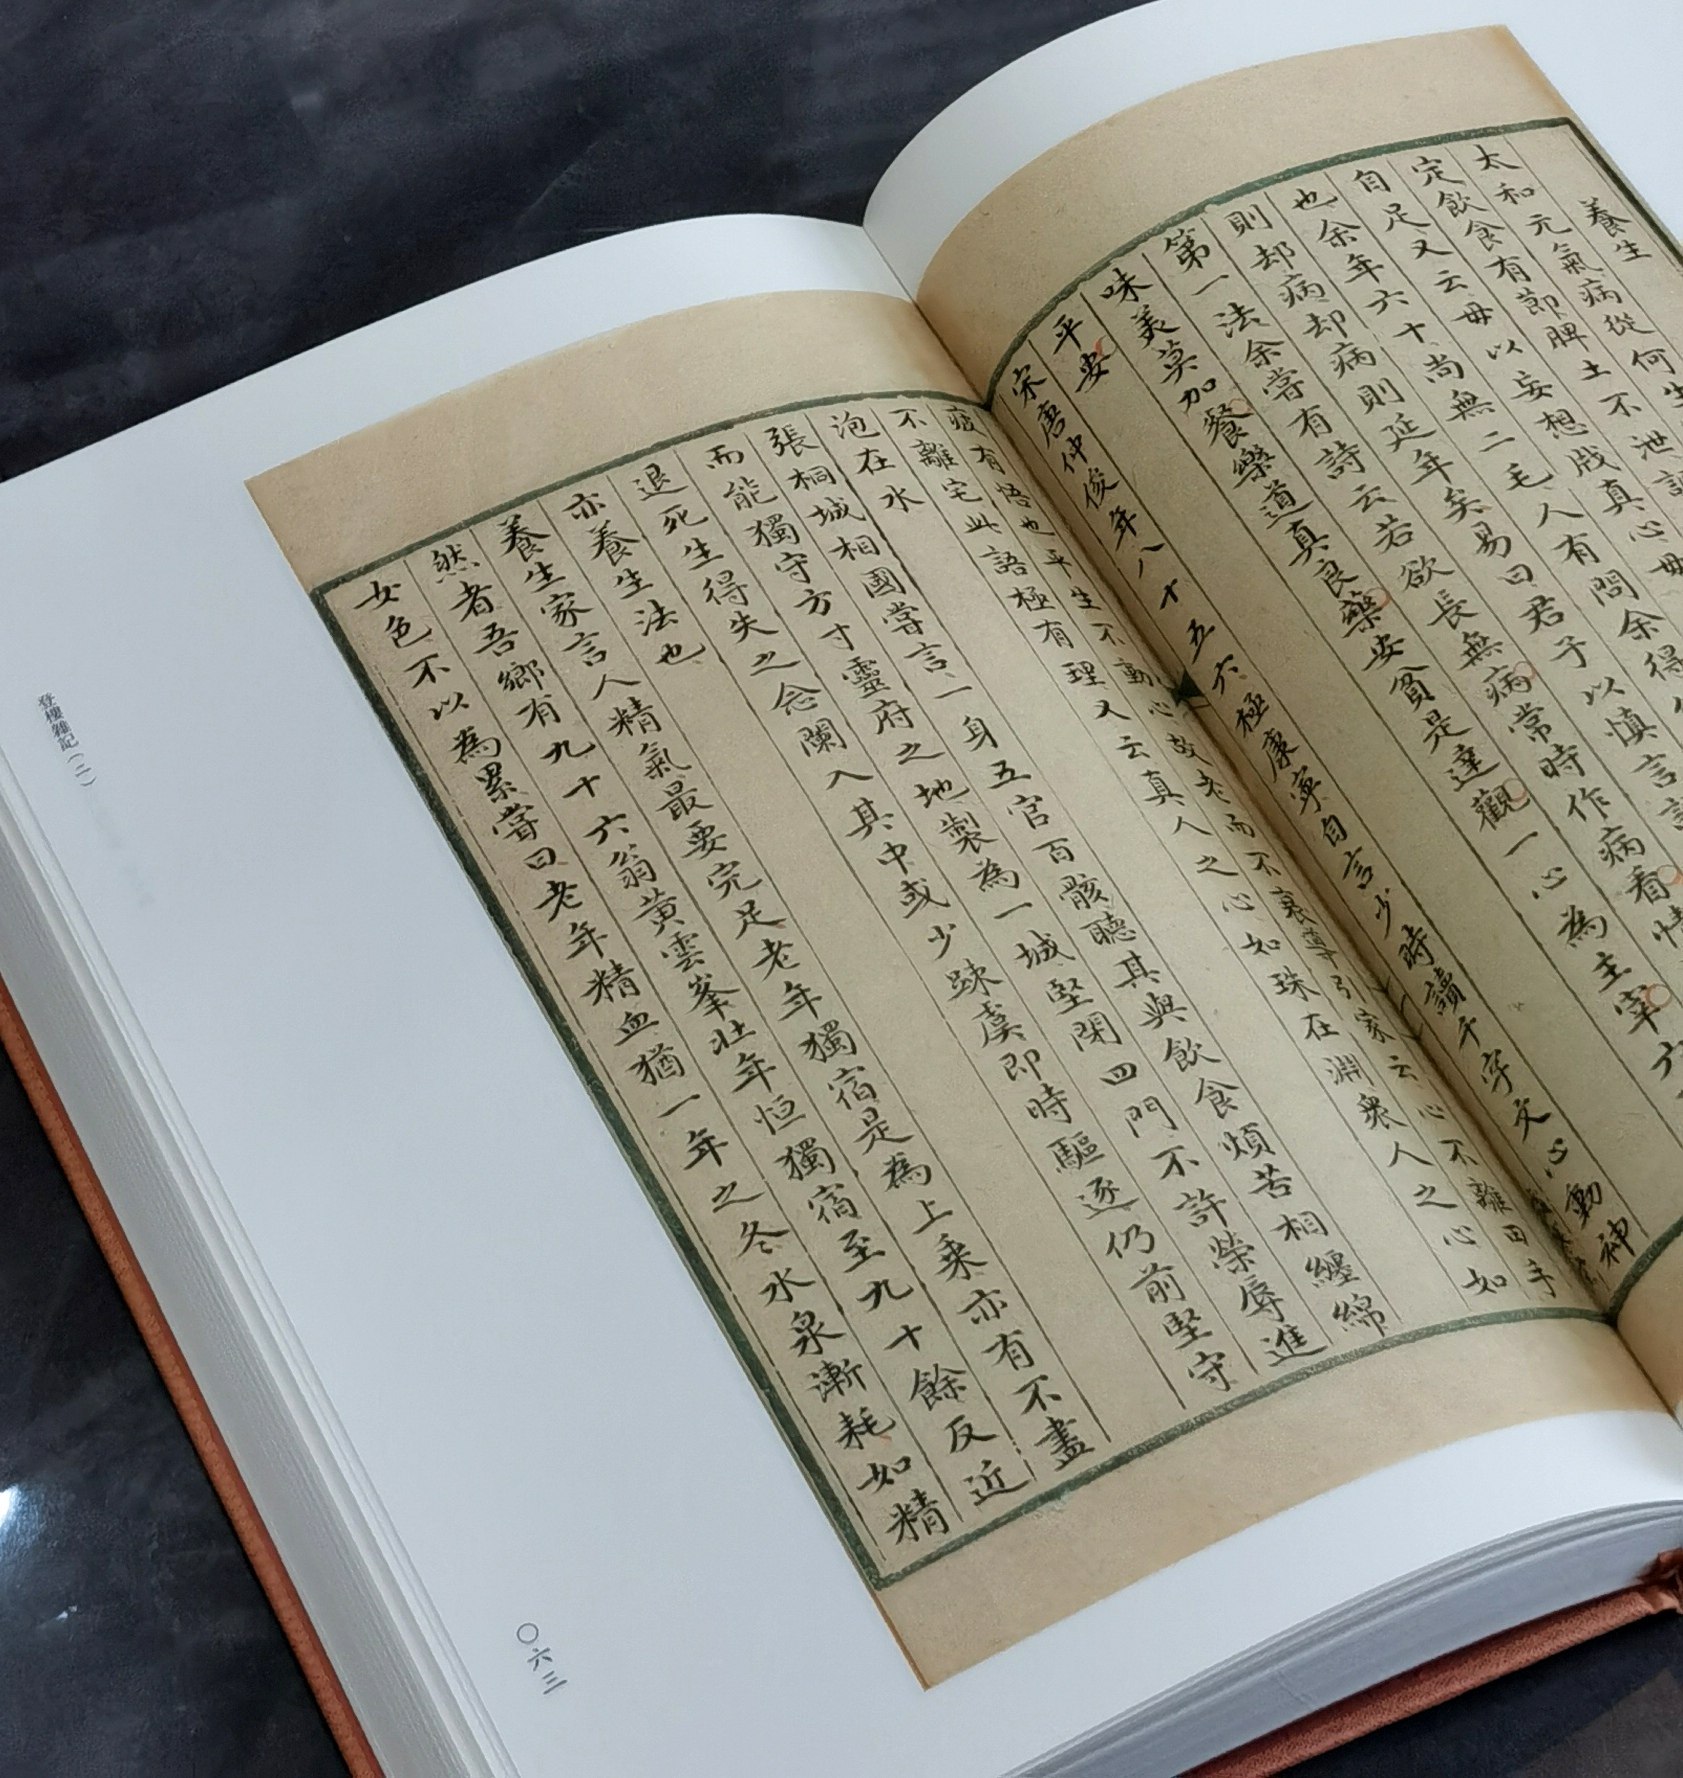 養生
太和元氣病從何生
定飲食有節脾土不泄調
自足又云毋以妄想戕真心毋
也余年六十尚無二毛人有問余得
則却病却病則延年矣易曰君子以慎言
第一法余嘗有詩云若欲長無病常時作病看情
味美莫加餐樂道真良藥安貧是達觀一心為主宰六
平安
宋唐仲俊年八十五六極康寧自言少時讀千字文心動神
疲有悟也平生不動心故老而不衰導引家云心不離田手
不離宅此語極有理又云真人之心如珠在淵衆人之心如
泡在水
張桐城相國嘗言一身五官百骸聽其與飲食煩苦相纏綿
而能獨守方寸靈府之地製為一城堅閉四門不許榮辱進
退死生得失之念闌入其中或少踈虞即時驅逐仍前堅守
亦養生法也
養生家言人精氣最要完足老年獨宿是為上乘亦有不盡
然者吾鄉有九十六翁黃雲峯壯年恒獨宿至九十餘反近
女色不以為累嘗曰老年精血猶一年之冬水泉漸耗如精
登樓雜記（二）
〇六三